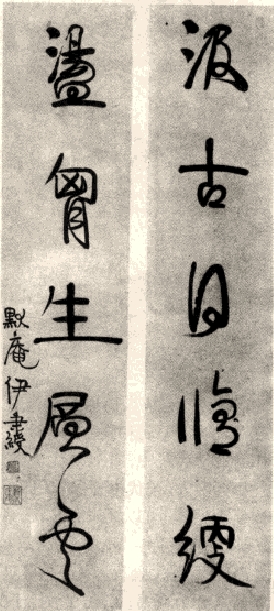 汲古得脩綆
盪胷生層雲
默庵伊秉綬